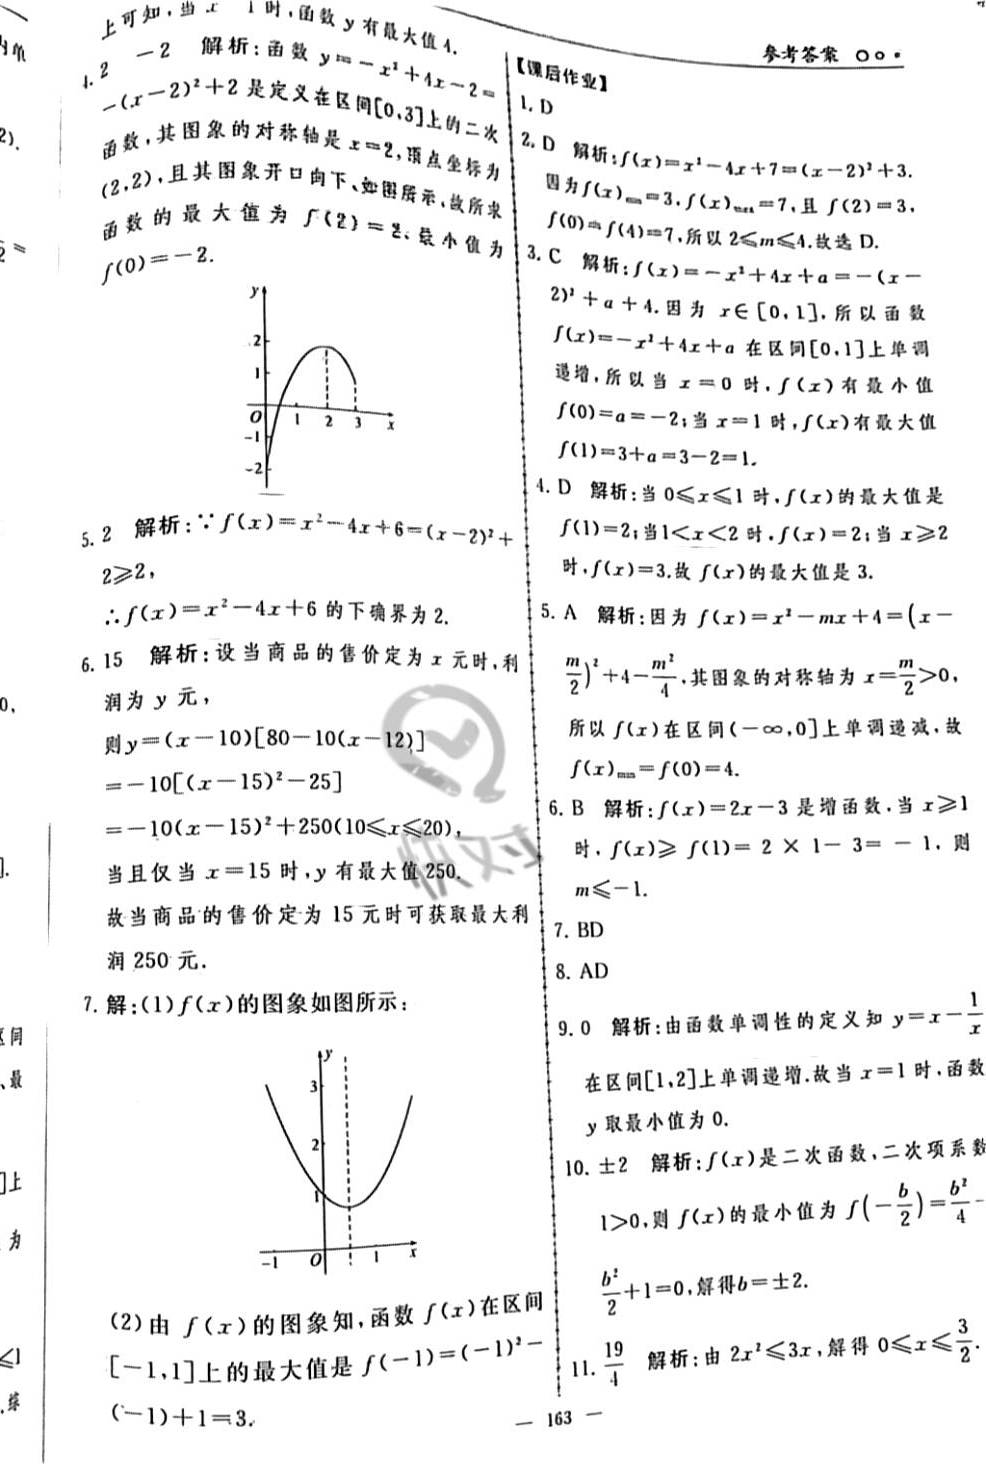 参考答案
上可知,当 x=1时,函数 y 有最大值4.
4. 2 -2 解析:函数 y=-x²+4x-2=
-(x-2)²+2 是定义在区间[0,3]上的二次
函数,其图象的对称轴是 x=2,顶点坐标为
(2,2),且其图象开口向下、如图所示,故所求
函数的最大值为 f(2)=2、最小值为
f(0)=-2.
y
2
1
O 1 2 3 x
-1
-2
5. 2 解析:∵f(x)=x²-4x+6=(x-2)²+
2≥2,
∴f(x)=x²-4x+6 的下确界为 2.
6. 15 解析:设当商品的售价定为 x 元时,利
润为 y 元,
则y=(x-10)[80-10(x-12)]
=-10[(x-15)²-25]
=-10(x-15)²+250(10≤x≤20),
当且仅当 x=15 时,y 有最大值 250.
故当商品的售价定为 15 元时可获取最大利
润 250 元.
7. 解:(1)f(x)的图象如图所示:
y
3
2
1
-1 O 1 x
(2)由 f(x)的图象知,函数 f(x)在区间
[-1,1]上的最大值是 f(-1)=(-1)²-
(-1)+1=3.
【课后作业】
1. D
2. D 解析:f(x)=x²-4x+7=(x-2)²+3.
因为f(x)min=3,f(x)max=7,且 f(2)=3,
f(0)=f(4)=7,所以 2≤m≤4.故选 D.
3. C 解析:f(x)=-x²+4x+a=-(x-
2)²+a+4.因为 x∈[0,1],所以函数
f(x)=-x²+4x+a 在区间[0,1]上单调
递增,所以当 x=0 时,f(x)有最小值
f(0)=a=-2;当 x=1 时,f(x)有最大值
f(1)=3+a=3-2=1.
4. D 解析:当 0≤x≤1 时,f(x)的最大值是
f(1)=2;当1<x<2 时,f(x)=2;当 x≥2
时,f(x)=3.故 f(x)的最大值是 3.
5. A 解析:因为 f(x)=x²-mx+4=(x-
m/2)²+4-m²/4,其图象的对称轴为 x=m/2>0,
所以 f(x)在区间(-∞,0]上单调递减,故
f(x)min=f(0)=4.
6. B 解析:f(x)=2x-3 是增函数,当 x≥1
时,f(x)≥f(1)=2×1-3=-1,则
m≤-1.
7. BD
8. AD
9. 0 解析:由函数单调性的定义知 y=x-1/x
在区间[1,2]上单调递增.故当 x=1 时,函数
y 取最小值为 0.
10. ±2 解析:f(x)是二次函数,二次项系数
1>0,则 f(x)的最小值为 f(-b/2)=b²/4-
b²/2+1=0,解得b=±2.
11. 19/4 解析:由 2x²≤3x,解得 0≤x≤3/2.
— 163 —